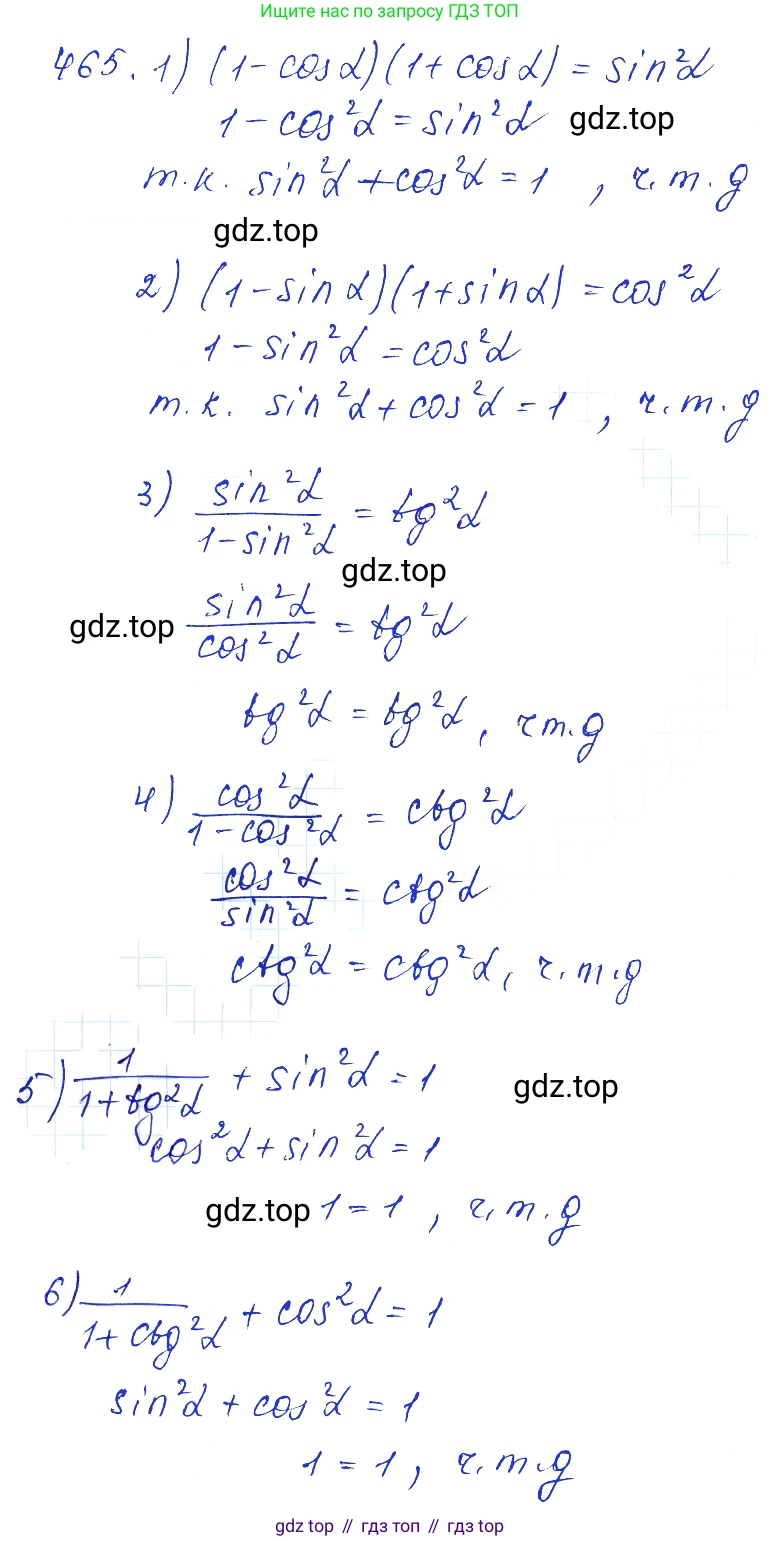 Ищите нас по запросу ГДЗ ТОП
465. 1) (1-cosα)(1+cosα) = sin²α
1-cos²α = sin²α gdz.top
т.к. sin²α+cos²α = 1, ч.т.д
gdz.top
2) (1-sinα)(1+sinα) = cos²α
1-sin²α = cos²α
т.к. sin²α+cos²α = 1, ч.т.д
3) sin²α/(1-sin²α) = tg²α
gdz.top
gdz.top sin²α/cos²α = tg²α
tg²α = tg²α, чт.д
4) cos²α/(1-cos²α) = ctg²α
cos²α/sin²α = ctg²α
ctg²α = ctg²α, ч.т.д
5) 1/(1+tg²α) + sin²α = 1 gdz.top
cos²α+sin²α = 1
gdz.top 1 = 1, ч.т.д
6) 1/(1+ctg²α) + cos²α = 1
sin²α + cos²α = 1
1 = 1, ч.т.д
gdz top // гдз топ // гдз top